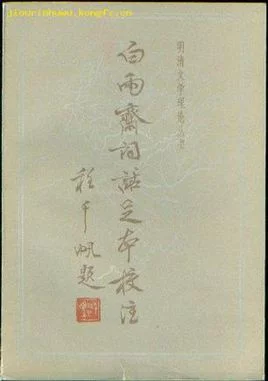 明清文学理论丛书
白雨齋詞話足本校注
程千帆題